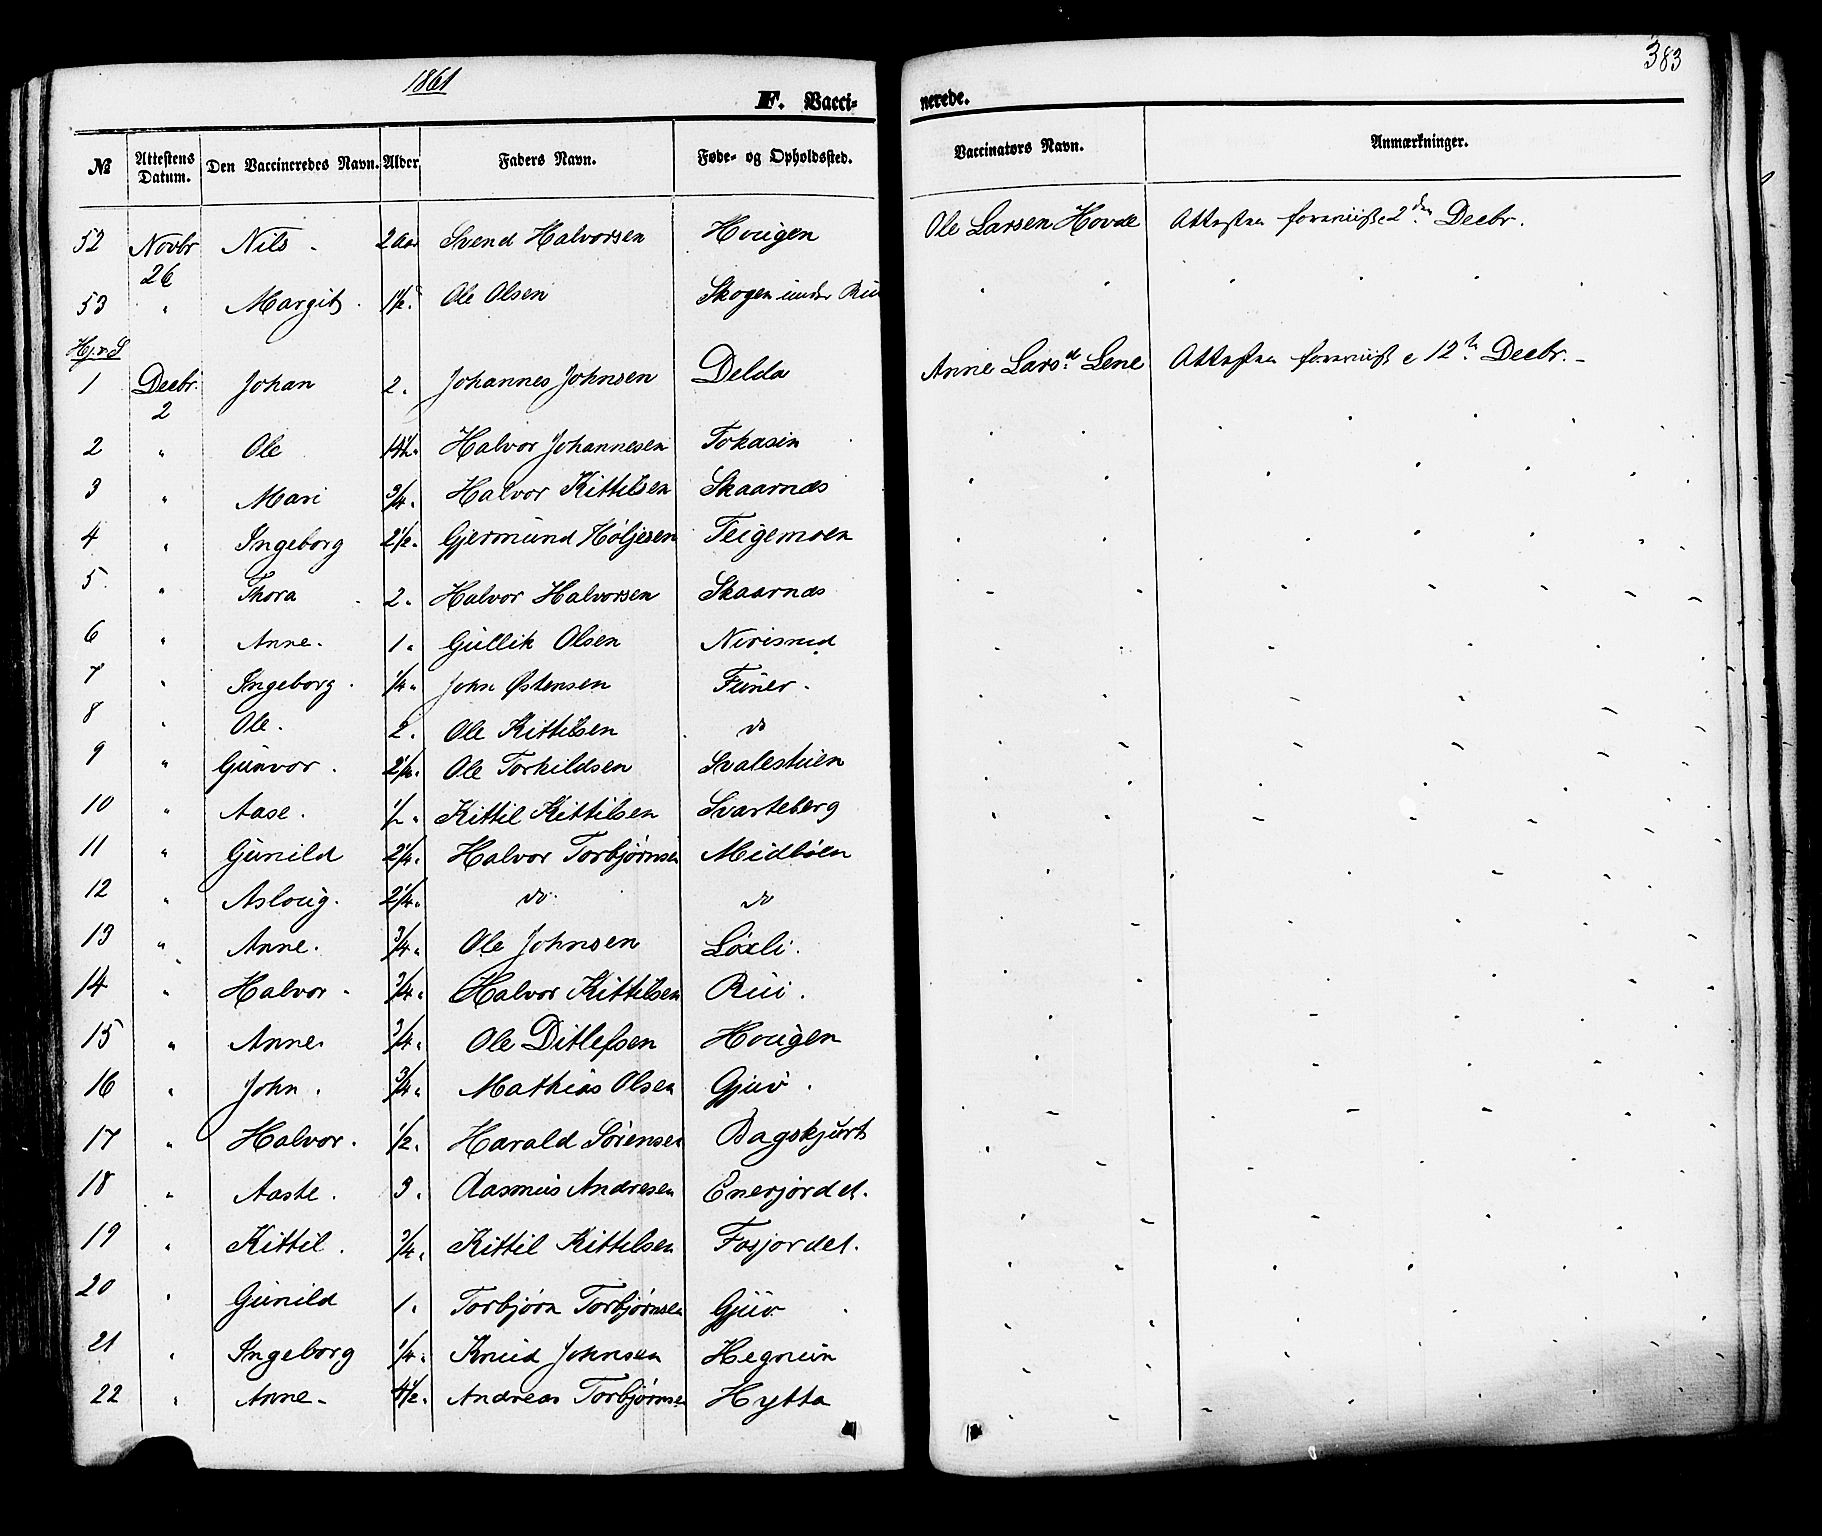 1861
383
F. Vacci- nerede.
№ Attestens Datum. Den Vaccineredes Navn. Alder Faders Navn. Føde- og Opholdssted. Vaccinators Navn. Anmærkninger.
52 Novbr 26 Nils 2 Aar Svend Halvorsen Hougen Ole Larsen Hovde Attesten foreviist 2den Decbr.
53 " Margit 1½ Ole Olsen Skogen under Rui
Hj. S
1 Decbr. 2 Johan 2 " Johannes Johnsen Delda Anne Larsd. Lene Attesten foreviist 12te Decbr. -
2 " Ole Halvor Johannesen Tokasin
3 " Mari ¾ " Halvor Kittilsen Skaarnæs
4 " Ingeborg 2½ " Gjermund Høljesen Teigemoen
5 " Thora 2 " Halvor Halvorsen Skaarnæs
6 " Anne 1 " Gullik Olsen
7 " Ingeborg ¼ " John Østensen Funer
8 " Ole 2 " Ole Kittilsen do
9 " Gunvor 2¼ " Ole Torkildsen Svalestuen
10 " Aase ½ " Kittil Kittilsen Svarteberg
11 " Gunild 2¼ " Halvor Torbjørnsen Midbøen
12 " Asloug 2¼ " do do
13 " Anne ¾ " Ole Johnsen Løxli
14 " Halvor ¾ " Halvor Kittilsen Rui
15 " Anne ¾ " Ole Ditlefsen Hougen
16 " John ¾ " Mathias Olsen Gjuv
17 " Halvor ½ " Harald Sørensen Bagskjurt
18 " Aaste 3 " Aasmus Andresen Enerjordet
19 " Kittil ¾ " Kittil Kittilsen Fosjordet
20 " Gunild 1 " Torbjørn Torbjørnsen Gjuv
21 " Ingeborg ¼ " Knud Johnsen Hegnun
22 " Anne 4½ " Andreas Torbjørnsen Hytta